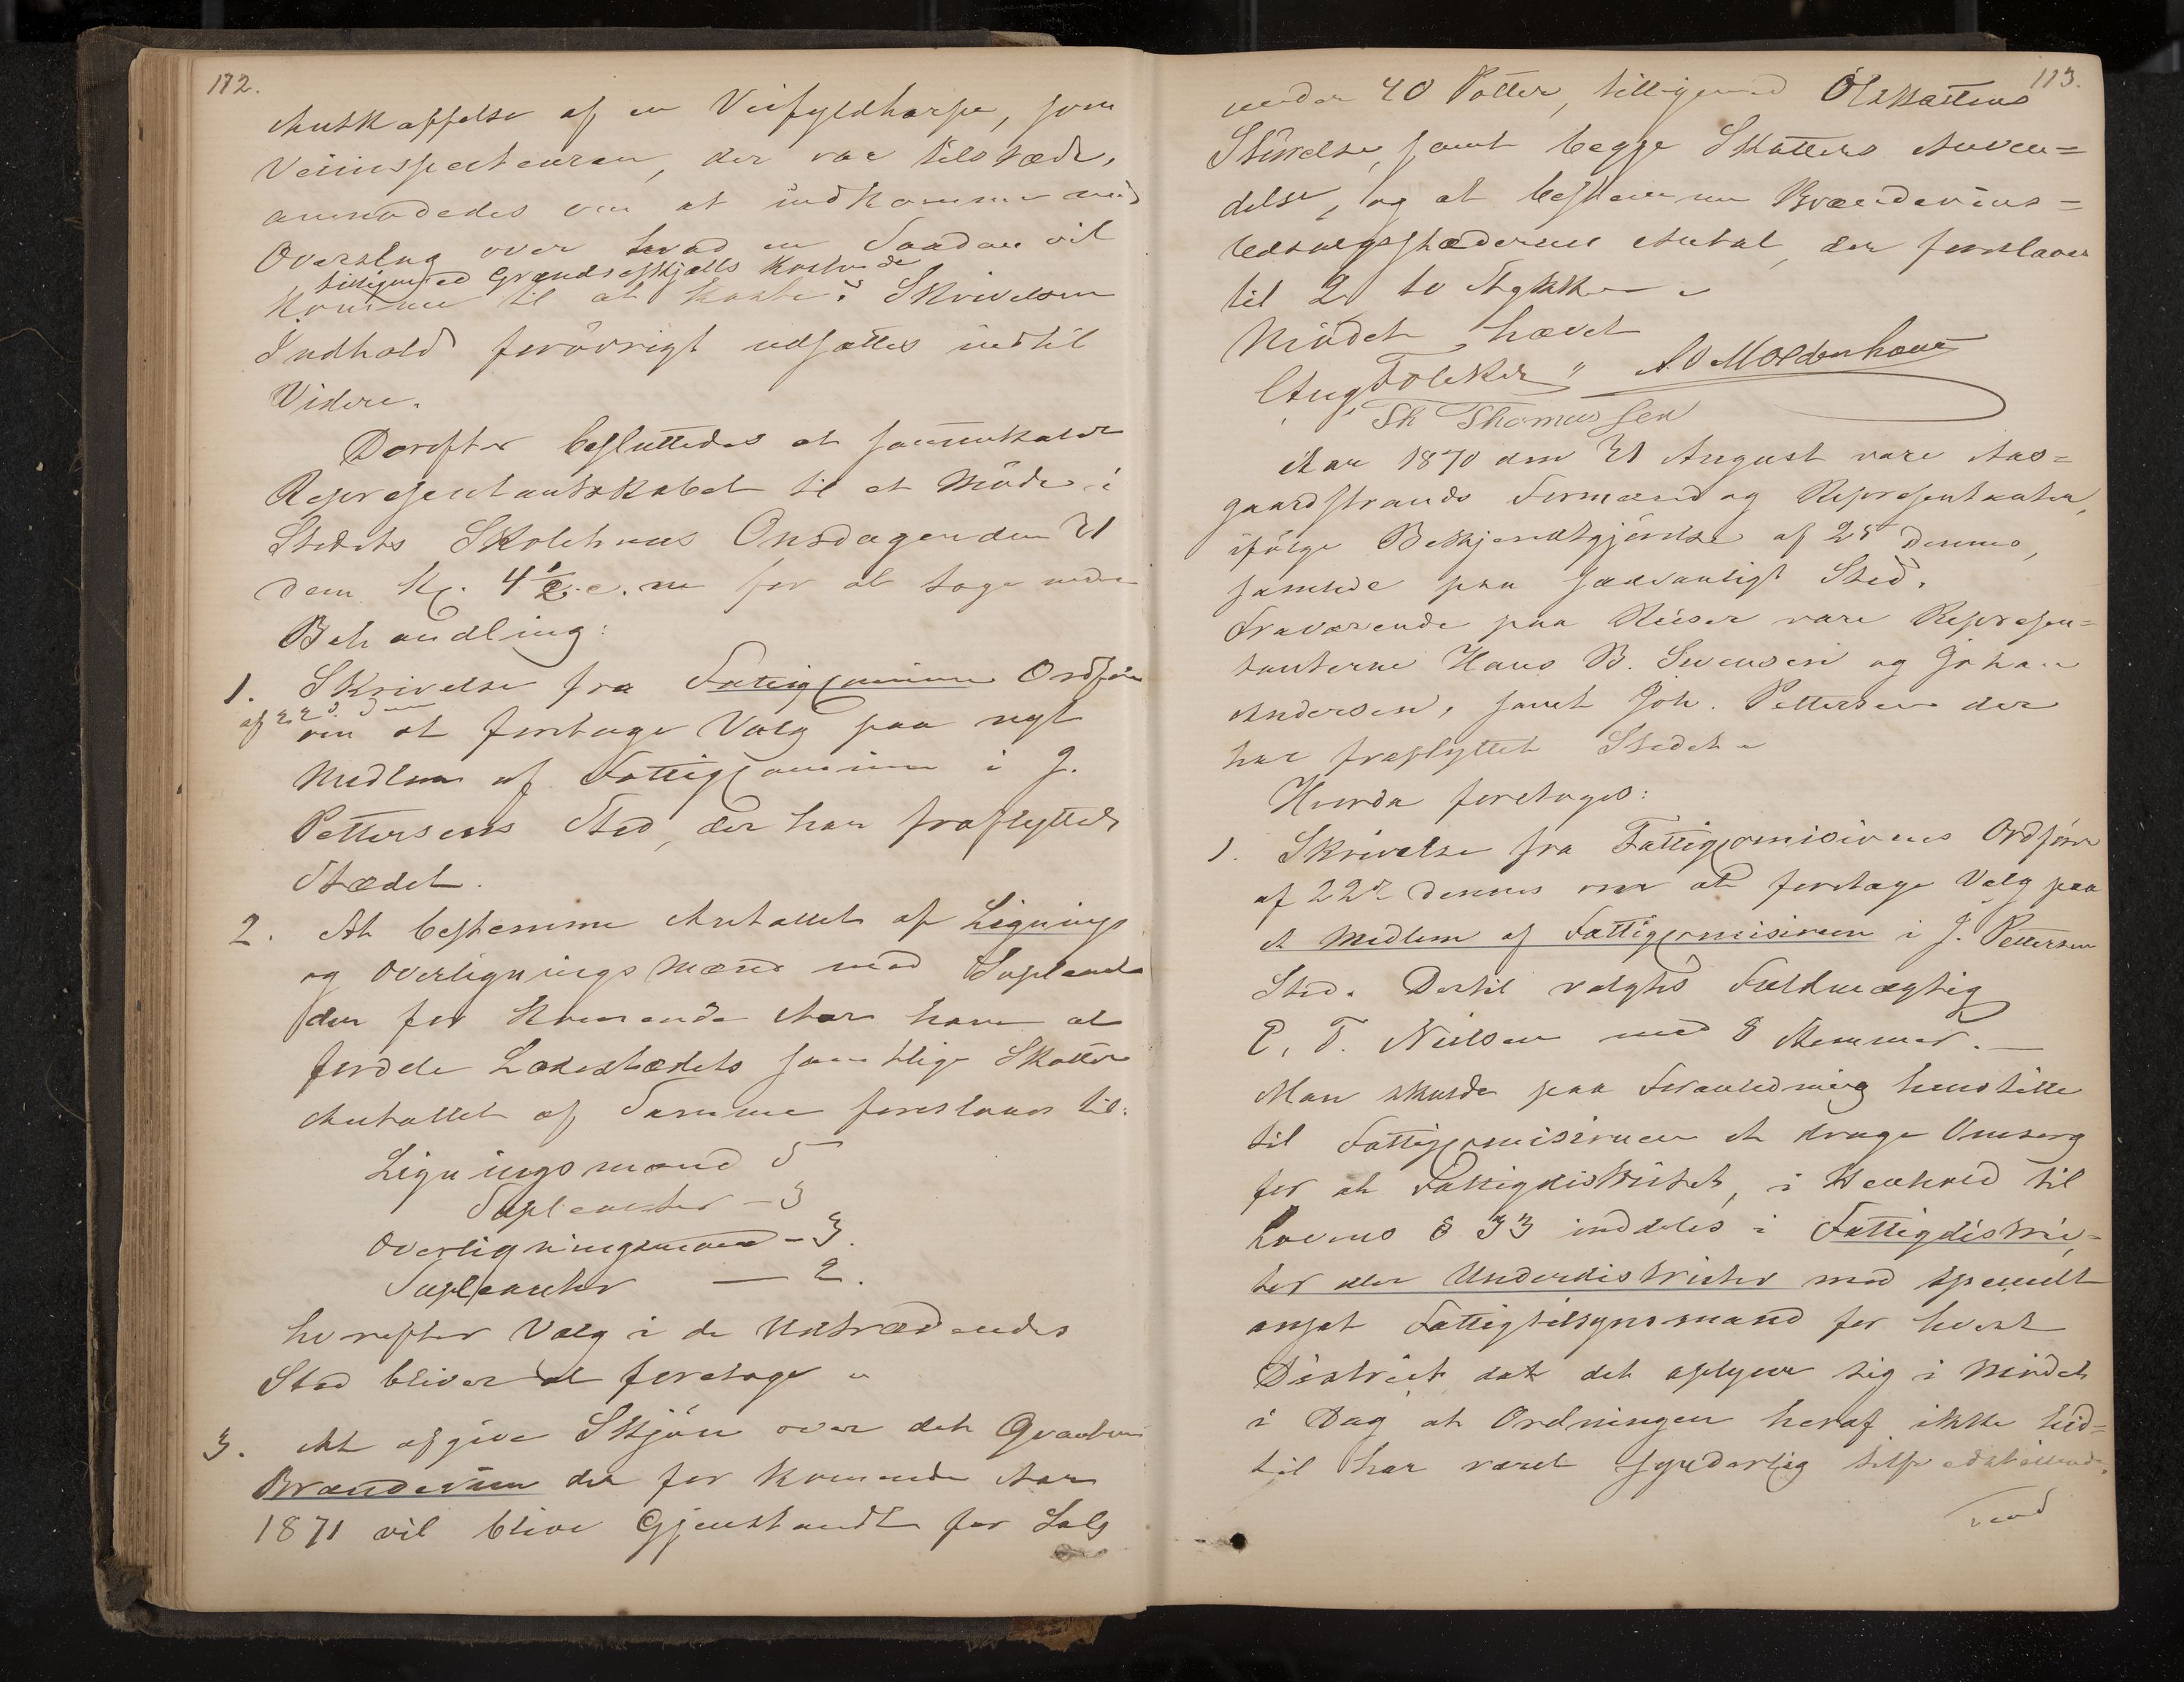 112.
Anskaffelse af en Veifyldharpe, som
Veiinspecteuren, der var tilstæde,
anmodedes om at indkomme med
Overslag over hvad en Saadan vil
tilligemed Grændseskjælls Kostende
komme til at koste. Skrivelsen
Indhold forövrigt udsattes indtil
Videre.
Derefter besluttedes at sammenkalde
Representantskabet til et Möde i
Stedets Skolehuus Onsdagen den 31
dem Kl. 4½ e. m for at tage under
Behandling:
1. Skrivelse fra Fattigcommins Ordförer
af 22d dm
om at foretage Valg paa nyt
Medlem af Fattigcommin i J.
Pettersens Sted, der har fraflyttet
Stædet.
2. At bestemme Antallet af Lignings
og Overligningsmænd med Supleanter
der for kommende Aar have at
fordele Ladestædets samtlige Skatter
Antallet af Samme foreslaaes til:
Ligningsmænd 5
Supleanter - 3
Overligningsmænd - 3.
Supleanter — 2.
hvorefter Valg i de Udtrædendes
Sted bliver at foretage "
3. At afgive Skjön over det Qvantum
Brændeviin der for kommende Aar
1871 vil blive Gjenstandt for Salg
113.
under 40 Potter, tilligemed Ölskattens
Störrelse, samt begge Skatters Anven=
delse, og at bestemme Brændeviins=
Udsalgsstædernes Antal, der foreslaaes
til 2 to Stykker "
Mödet hævet
Aug Folcker " A O Moldenhauer
Sk Thomassen
Aar 1870 den 31 August vare Aas=
gaardstrands Formænd og Representanter,
ifölge Bekjendtgjörelse af 25 dennes,
samlede paa sædvanligt Sted.
Fraværende paa Reiser vare Represen=
tanterne Hans B. Svensen og Johan
Andersen, samt Joh. Pettersen der
har fraflyttet Stedet "
Hvorda foretoges:
1. Skrivelse fra Fattigcomisionens Ordförer
af 22de dennes om at foretage Valg paa
et Medlem af Fattigcomisionen i J. Pettersens
Sted. Dertil valgtes Fuldmægtig
C. F. Nielsen med 8 Stemmer. —
Man skulde paa Foranledning henstille
til Fattigcomisionen at drage Omsorg
for at Fattigdistriktet, i Henhold til
Lovens § 33 inddeles i Fattigdistric=
ter eller Underdistricter med specielt
ansat Fattigtilsynsmand for hvert
District da det oplyser sig i Mödet
i Dag at Ordningen heraf ikke hid=
til har været synderlig tilfredstillende.